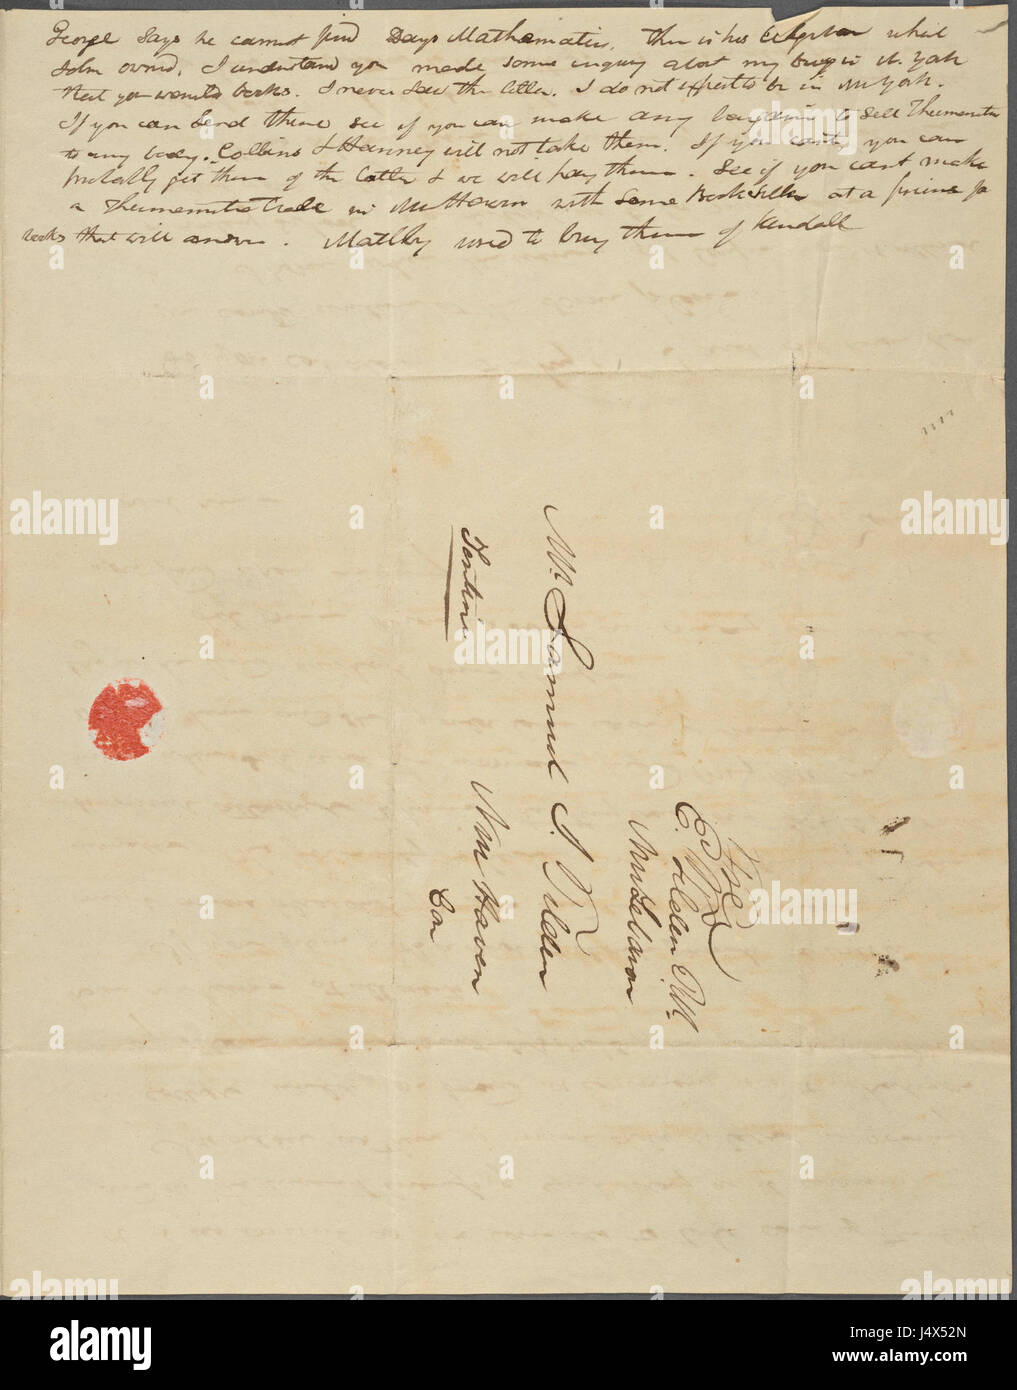 George Says he cannot find Days Mathematics. There is his Algebra which
John owned. I understand you made some inquiry about my being in N. York
that you wanted books. I never Saw the letter. I do not expect to be in New York.
If you can Send them see if you can make any bargain to Sell Thermometers
to any body. Collins & Hanney will not take them. If you can't you can
probably get them of the latter & we will pay them. See if you cant make
a Thermometer trade in N Haven with Some Book Seller at a price for
books that will answer. Maltby used to buy them of Kendall
Mr. Samuel J. Tilden
Tontine
New Haven
Con
Free
E. Tilden P.M.
New Lebanon
alamy
alamy
alamy
alamy
Image ID: J4X52N
www.alamy.com